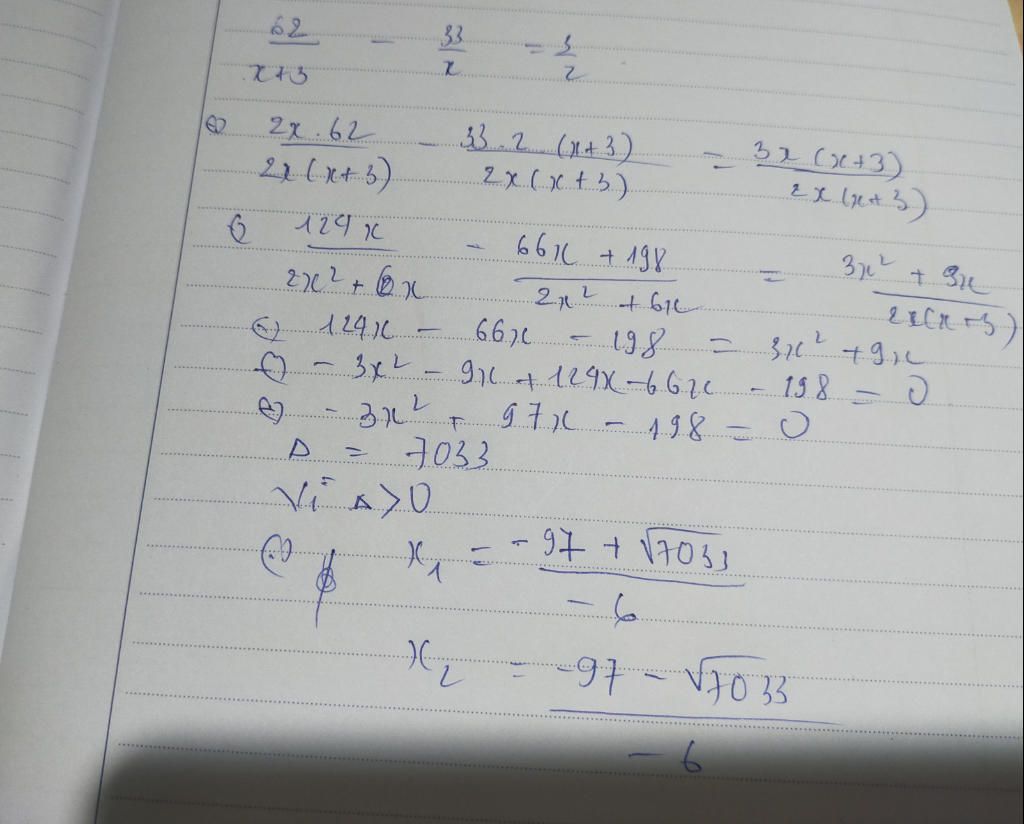 62/(x+3) - 33/x = 3/2
⇔ 2x.62/2x(x+3) - 33.2(x+3)/2x(x+3) = 3x(x+3)/2x(x+3)
⇔ 124x/(2x² + 6x) - (66x + 198)/(2x² + 6x) = (3x² + 9x)/2x(x+3)
⇔ 124x - 66x - 198 = 3x² + 9x
⇔ - 3x² - 9x + 124x - 66x - 198 = 0
⇔ - 3x² + 97x - 198 = 0
Δ = 7033
Vì Δ > 0
x₁ = (-97 + √7033)/-6
x₂ = (-97 - √7033)/-6